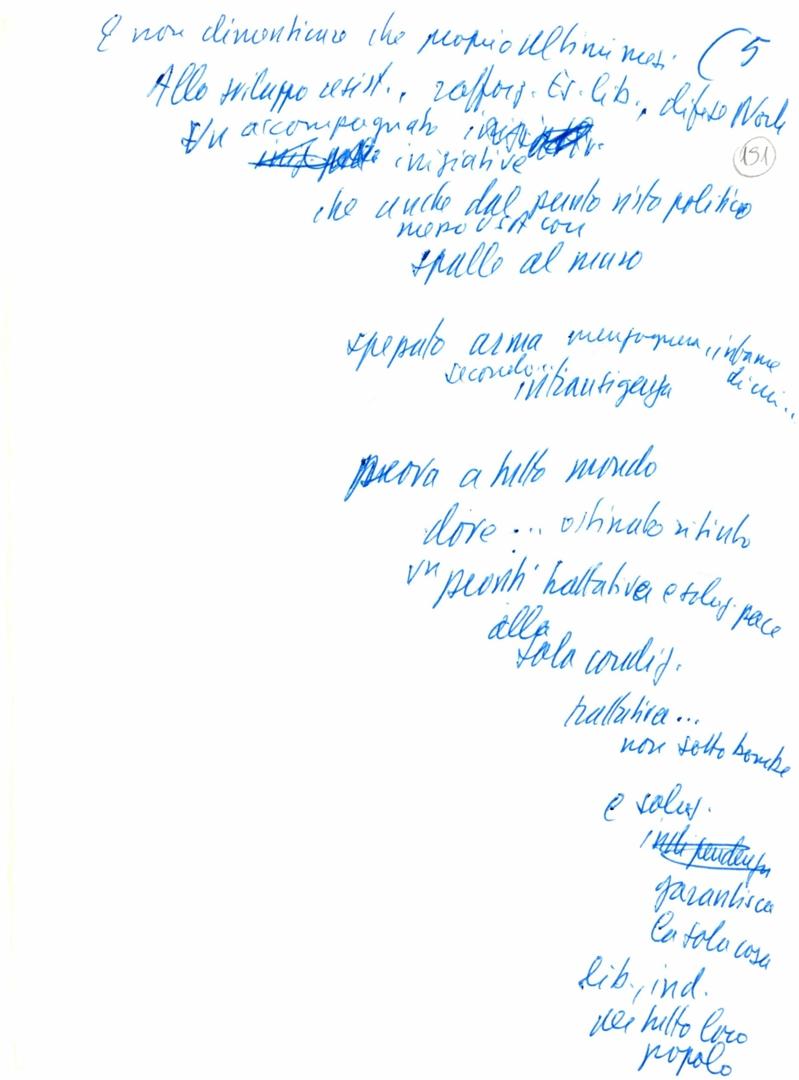 E non dimenticare che proprio ultimi mesi (5
Allo sviluppo resist., rafforz. Es. lib., difesa Nord
151
accompagnato
iniziative
che anche dal punto vista politico
messo USA con
spalle al muro
spezzato arma menzognera, infame
secondo.. di cui..
intransigenza
prova a tutto mondo
dove... ostinato rifiuto
VN pronti trattativa e soluz. pace
alla
sola condiz.
trattativa...
non sotto bombe
e soluz.
indipendenza
garantisca
la sola cosa
lib., ind.
per tutto loro
popolo